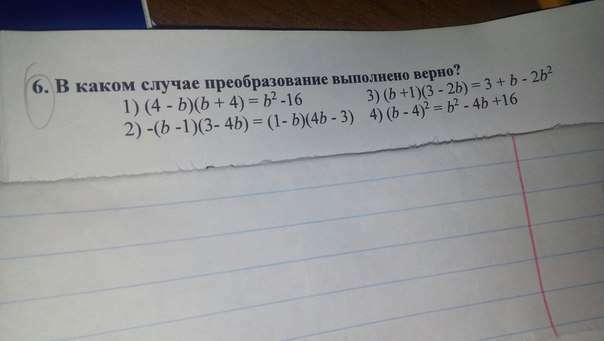 6. В каком случае преобразование выполнено верно?
1) (4 - b)(b + 4) = b² -16 3) (b +1)(3 - 2b) = 3 + b - 2b²
2) -(b -1)(3- 4b) = (1- b)(4b - 3) 4) (b - 4)² = b² - 4b +16